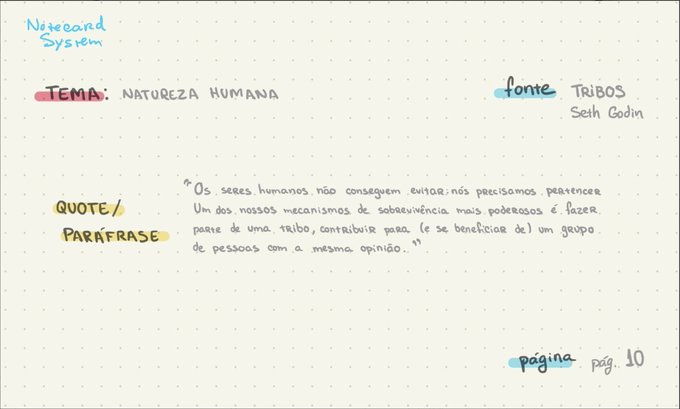 Notecard
System
TEMA: NATUREZA HUMANA
fonte TRIBOS
Seth Godin
"Os seres humanos não conseguem evitar; nós precisamos pertencer
QUOTE/
Um dos nossos mecanismos de sobrevivência mais poderosos é fazer
parte de uma tribo, contribuir para (e se beneficiar de) um grupo
PARÁFRASE
de pessoas com a mesma opinião."
página pág. 10